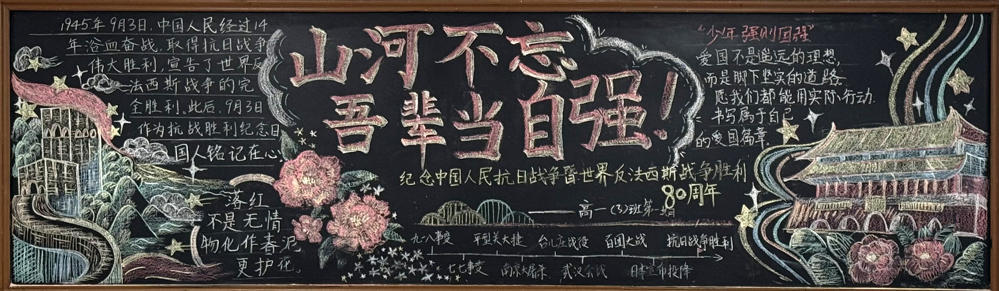 1945年9月3日,中国人民经过14
年浴血奋战,取得抗日战争
伟大胜利,宣告了世界反
法西斯战争的完
全胜利.此后,9月3日
作为抗战胜利纪念日
国人铭记在心
落红
不是无情
物化作春泥
更护花。
山河不忘
吾辈当自强!
纪念中国人民抗日战争暨世界反法西斯战争胜利
80周年
高一(3)班第一组
九一八事变 平型关大捷 台儿庄战役 百团大战 抗日战争胜利
七七事变 南京大屠杀 武汉会战 日本宣布投降
"少年强则国强"
爱国不是遥远的理想,
而是脚下坚实的道路
愿我们都能用实际行动
书写属于自己
的爱国篇章.